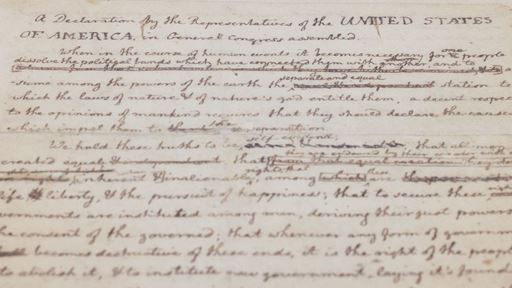 A Declaration by the Representatives of the UNITED STATES
OF AMERICA, in General Congress assembled.
When in the course of human events it becomes necessary for one people to
dissolve the political bands which have connected them with another, and to
-sume among the powers of the earth the separate and equal station to
which the laws of nature & of nature's god entitle them, a decent respect
to the opinions of mankind requires that they should declare the causes
which impel them to the separation
We hold these truths to be self evident, that all men
created equal & that
rights that among these
life & liberty, & the pursuit of happiness; that to secure these
-vernments are instituted among men, deriving their just powers
the consent of the governed; that whenever any form of government
becomes destructive of these ends, it is the right of the people
to abolish it, & to institute new government, laying it's found